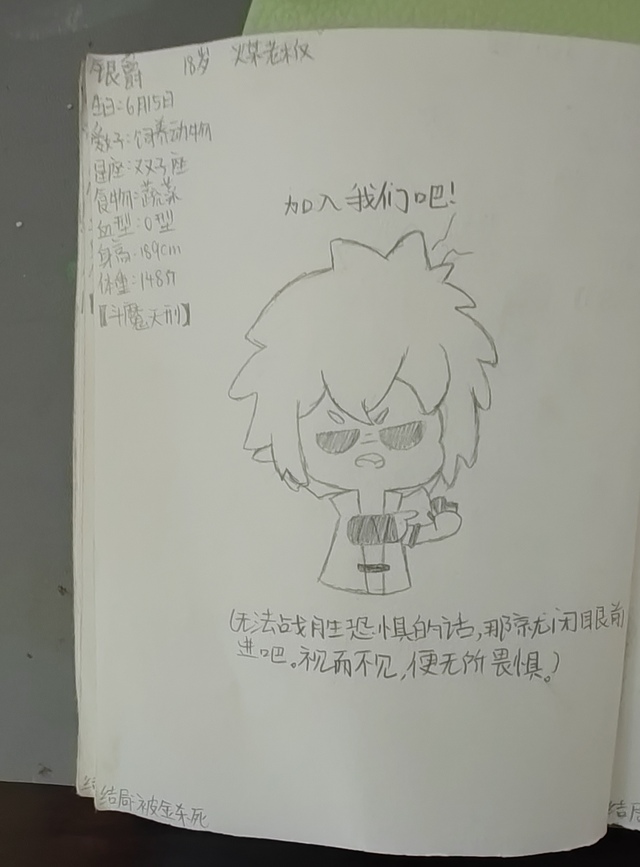 银爵 18岁 煤老板
生日:6月15日
爱好:饲养动物
星座:双子座
食物:蔬菜
血型:O型
身高:189cm
体重:148斤
【斗魔天刑】
加入我们吧!
(无法战胜恐惧的话,那就闭眼前
进吧。视而不见,便无所畏惧。)
结局:被金杀死
结局